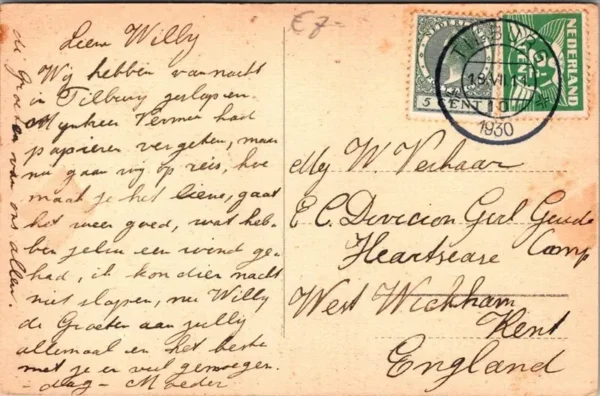 £ 7-
Lieve Willy
Wij hebben vannacht
in Tilburg geslapen.
Mijnheer Vermeer had
papieren vergeten, maar
nu gaan wij op reis, hoe
maak je het lieve, gaat
het weer goed, wat heb-
ben jelui een wind ge-
had, ik kon dien nacht
niet slapen, nu Willy
de Groeten aan jullij
allemaal en het beste
met je er viel genoegen.
- dag - Moeder
de Groeten van ons allen.
5 CENT
NEDERLAND
TILBURG
18.VII.1
1930
My W. Verhaar
E C. Divicion Girl Geude
Heartsease Camp
West Wickham
Kent
England